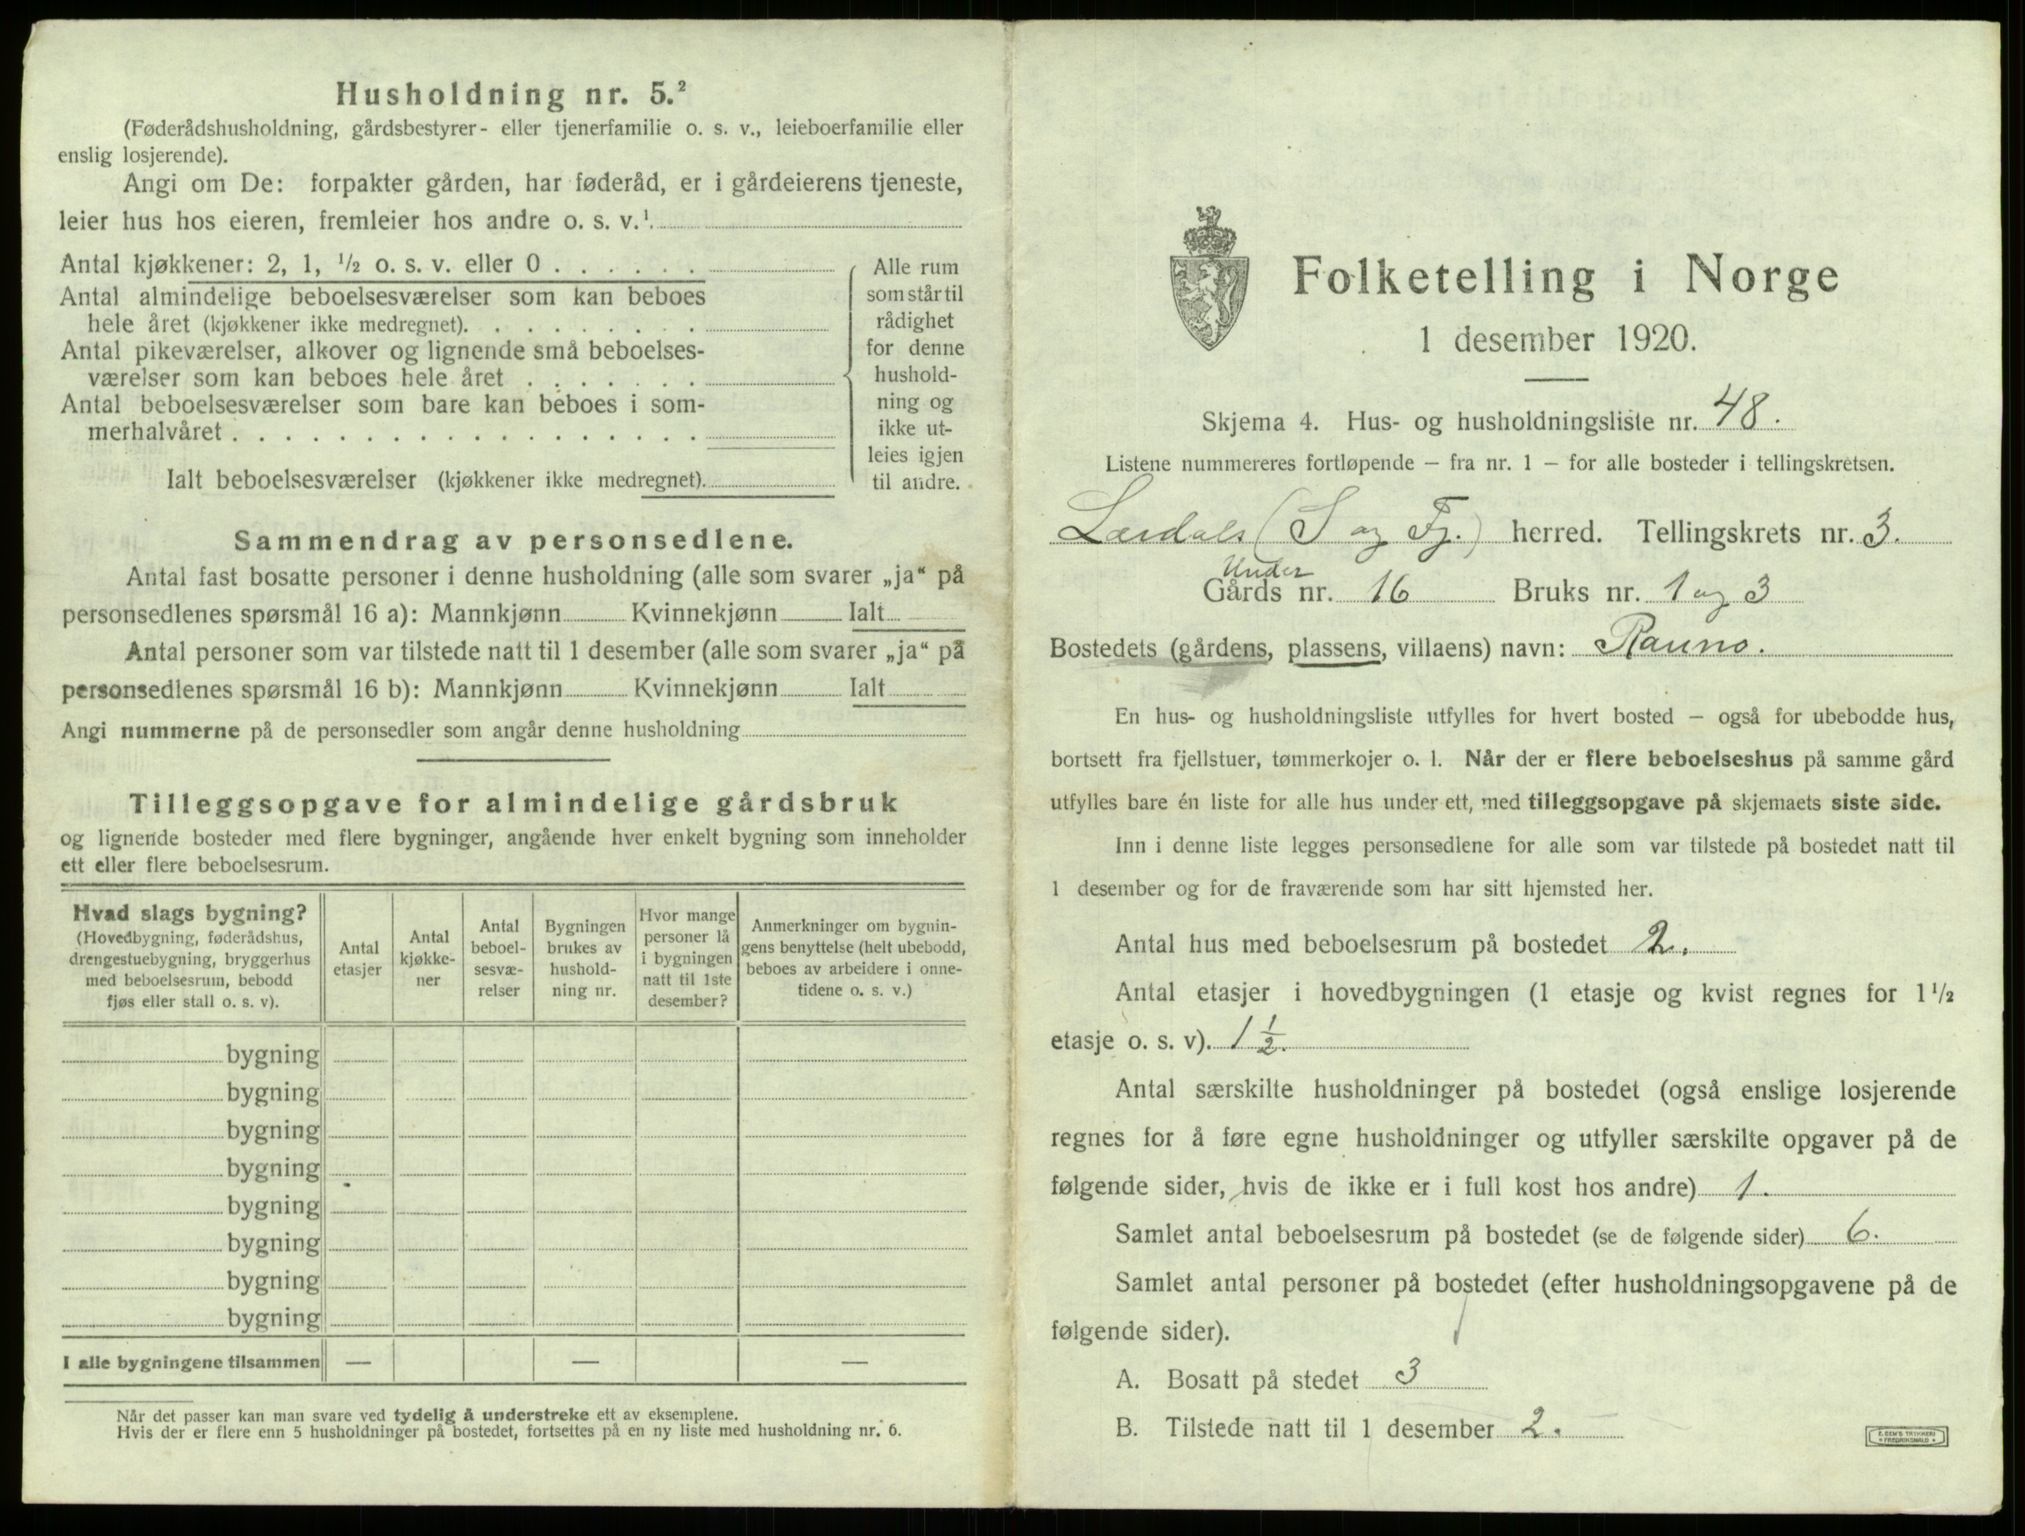 Husholdning nr. 5.²
(Føderådshusholdning, gårdsbestyrer- eller tjenerfamilie o. s. v., leieboerfamilie eller
enslig losjerende).
Angi om De: forpakter gården, har føderåd, er i gårdeierens tjeneste,
leier hus hos eieren, fremleier hos andre o. s. v.¹
Antal kjøkkener: 2, 1, ½ o. s. v. eller 0 . . . . . .
Antal almindelige beboelsesværelser som kan beboes
hele året (kjøkkener ikke medregnet). . . . . . . . .
Antal pikeværelser, alkover og lignende små beboelses-
værelser som kan beboes hele året . . . . . . .
Antal beboelsesværelser som bare kan beboes i som-
merhalvåret . . . . . . . . . . . . . . . . . .
Ialt beboelsesværelser (kjøkkener ikke medregnet).
Alle rum
som står til
rådighet
for denne
hushold-
ning og
ikke ut-
leies igjen
til andre.
Sammendrag av personsedlene.
Antal fast bosatte personer i denne husholdning (alle som svarer „ja“ på
personsedlenes spørsmål 16 a): Mannkjønn Kvinnekjønn Ialt
Antal personer som var tilstede natt til 1 desember (alle som svarer „ja“ på
personsedlenes spørsmål 16 b): Mannkjønn Kvinnekjønn Ialt
Angi nummerne på de personsedler som angår denne husholdning
Tilleggsopgave for almindelige gårdsbruk
og lignende bosteder med flere bygninger, angående hver enkelt bygning som inneholder
ett eller flere beboelsesrum.
Hvad slags bygning?
(Hovedbygning, føderådshus,
drengestuebygning, bryggerhus
med beboelsesrum, bebodd
fjøs eller stall o. s. v).
Antal
etasjer
Antal
kjøkke-
ner
Antal
beboel-
sesvæ-
relser
Bygningen
brukes av
hushold-
ning nr.
Hvor mange
personer lå
i bygningen
natt til 1ste
desember?
Anmerkninger om bygnin-
gens benyttelse (helt ubebodd,
beboes av arbeidere i onne-
tidene o. s. v.)
bygning
bygning
bygning
bygning
bygning
bygning
bygning
bygning
I alle bygningene tilsammen — — —
Når det passer kan man svare ved tydelig å understreke ett av eksemplene.
Hvis der er flere enn 5 husholdninger på bostedet, fortsettes på en ny liste med husholdning nr. 6.
Folketelling i Norge
1 desember 1920.
Skjema 4. Hus- og husholdningsliste nr. 48.
Listene nummereres fortløpende – fra nr. 1 – for alle bosteder i tellingskretsen.
Lærdals (S og Fj.) herred. Tellingskrets nr. 3.
Under
Gårds nr. 16 Bruks nr. 1 og 3
Bostedets (gårdens, plassens, villaens) navn: Rauno.
En hus- og husholdningsliste utfylles for hvert bosted – også for ubebodde hus,
bortsett fra fjellstuer, tømmerkojer o. l. Når der er flere beboelseshus på samme gård
utfylles bare én liste for alle hus under ett, med tilleggsopgave på skjemaets siste side.
Inn i denne liste legges personsedlene for alle som var tilstede på bostedet natt til
1 desember og for de fraværende som har sitt hjemsted her.
Antal hus med beboelsesrum på bostedet 2.
Antal etasjer i hovedbygningen (1 etasje og kvist regnes for 1½
etasje o. s. v). 1 ½.
Antal særskilte husholdninger på bostedet (også enslige losjerende
regnes for å føre egne husholdninger og utfyller særskilte opgaver på de
følgende sider, hvis de ikke er i full kost hos andre) 1.
Samlet antal beboelsesrum på bostedet (se de følgende sider) 6.
Samlet antal personer på bostedet (efter husholdningsopgavene på de
følgende sider).
A. Bosatt på stedet 3
B. Tilstede natt til 1 desember 2.
E. SEM'S TRYKKERI
FREDRIKSHALD